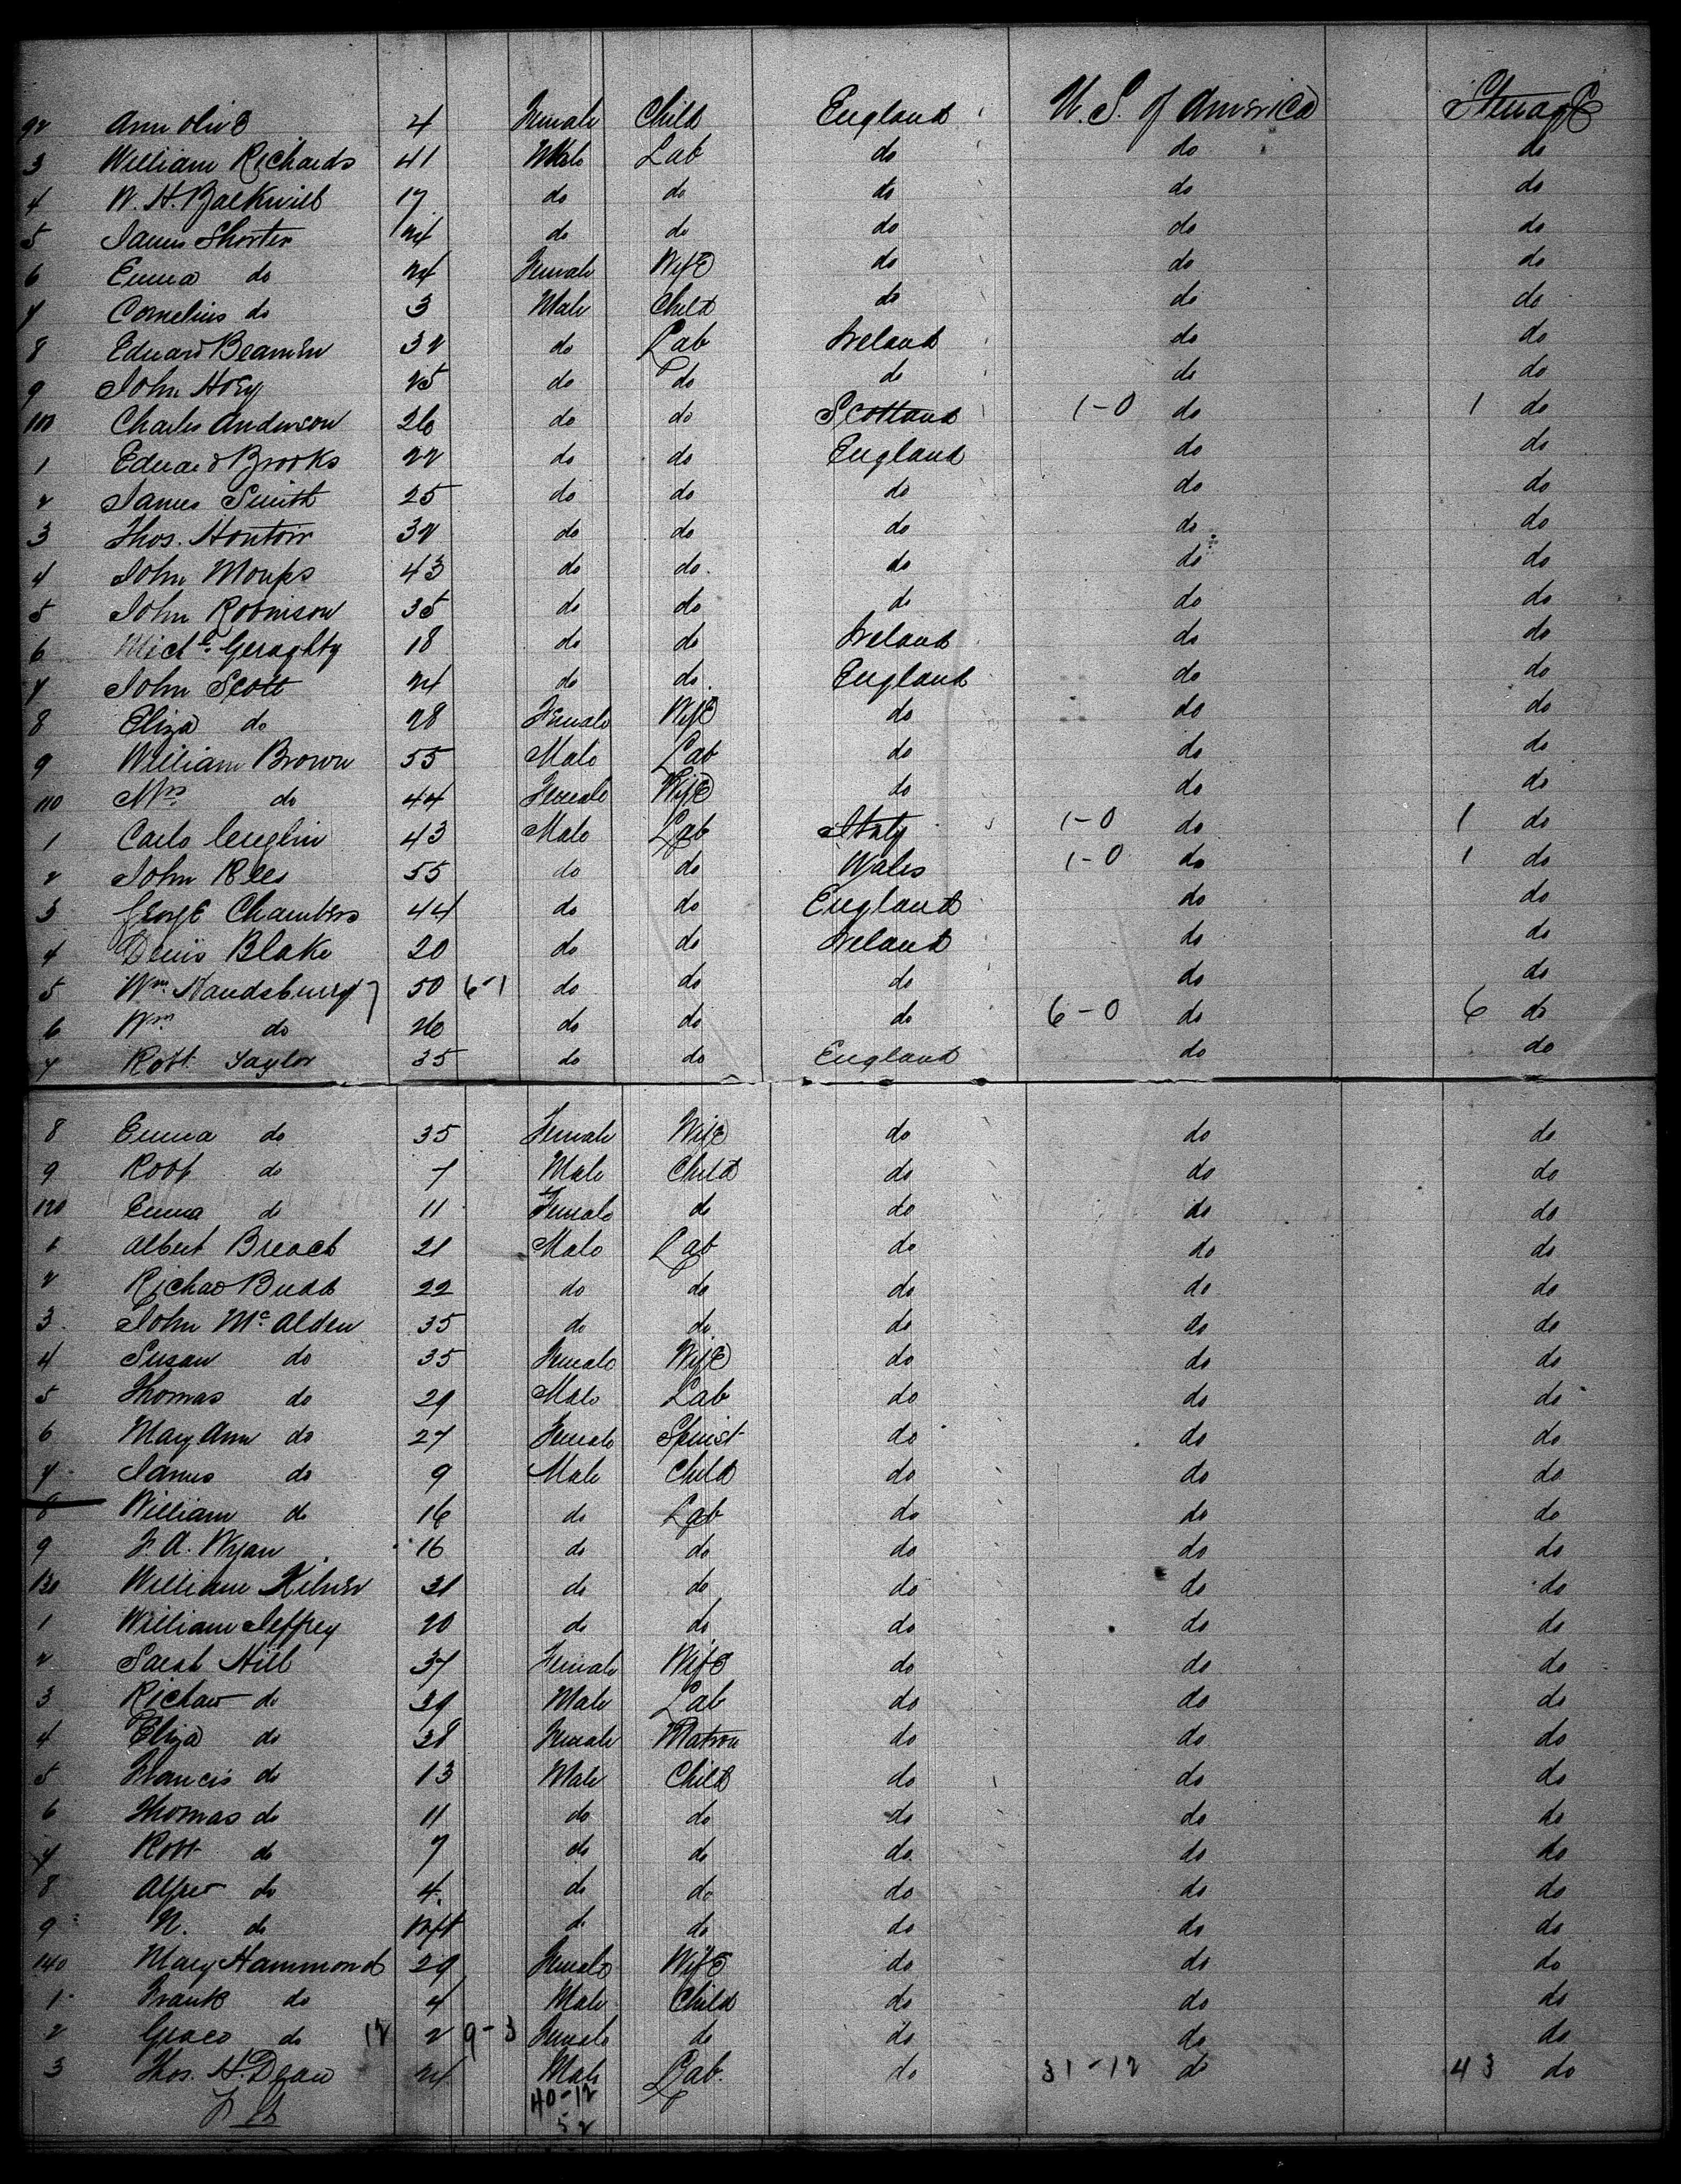 92 Ann Oliv 4 Female Child England U. S. of America Steerage
3 William Richards 41 Male Lab do do do
4 W. H. 17 do do do do do
5 James Shorter 24 do do do do do
6 Emma do 24 Female Wife do do do
7 Cornelius do 3 Male Child do do do
8 Edward Beamen 32 do Lab Ireland do do
9 John Hoey 25 do do do do do
100 Charles Anderson 26 do do Scotland 1-0 do 1 do
1 Edward Brooks 22 do do England do do
2 James Smith 25 do do do do do
3 Thos. 32 do do do do do
4 John Monks 43 do do do do do
5 John Robinson 35 do do do do do
6 Michl. Geraghty 18 do do Ireland do do
7 John Scott 24 do do England do do
8 Eliza do 28 Female Wife do do do
9 William Brown 55 Male Lab do do do
110 Mrs do 44 Female Wife do do do
1 Carlo 43 Male Lab Italy 1-0 do 1 do
2 John Rees 55 do do Wales 1-0 do 1 do
3 George Chambers 44 do do England do do
4 Denis Blake 20 do do Ireland do do
5 Wm. 50 6-1 do do do do do
6 Wm do 26 do do do 6-0 do 6 do
7 Robt. Taylor 35 do do England do do
8 Emma do 35 Female Wife do do do
9 Robt do 7 Male Child do do do
120 Emma do 11 Female do do do do
1 Albert Breach 21 Male Lab do do do
2 Richard Budd 22 do do do do do
3 John Mc Alden 35 do do do do do
4 Susan do 35 Female Wife do do do
5 Thomas do 29 Male Lab do do do
6 Mary Ann do 27 Female Spinst do do do
7 James do 9 Male Child do do do
8 William do 16 do Lab do do do
9 16 do do do do do
130 William Kilner 31 do do do do do
1 William Jeffrey 20 do do do do do
2 Sarah Hill 37 Female Wife do do do
3 Richard do 39 Male Lab do do do
4 Eliza do 38 Female Matron do do do
5 Francis do 13 Male Child do do do
6 Thomas do 11 do do do do do
7 Robt do 7 do do do do do
8 Alfred do 4 do do do do do
9 N. do Inft do do do do do
140 Mary Hammond 29 Female Wife do do do
1 Frank do 4 Male Child do do do
2 Grace do 12 2 9-3 Female do do do do
3 Thos. H. Dean 24 Male Lab. do 31-12 do 43 do
40-12
52